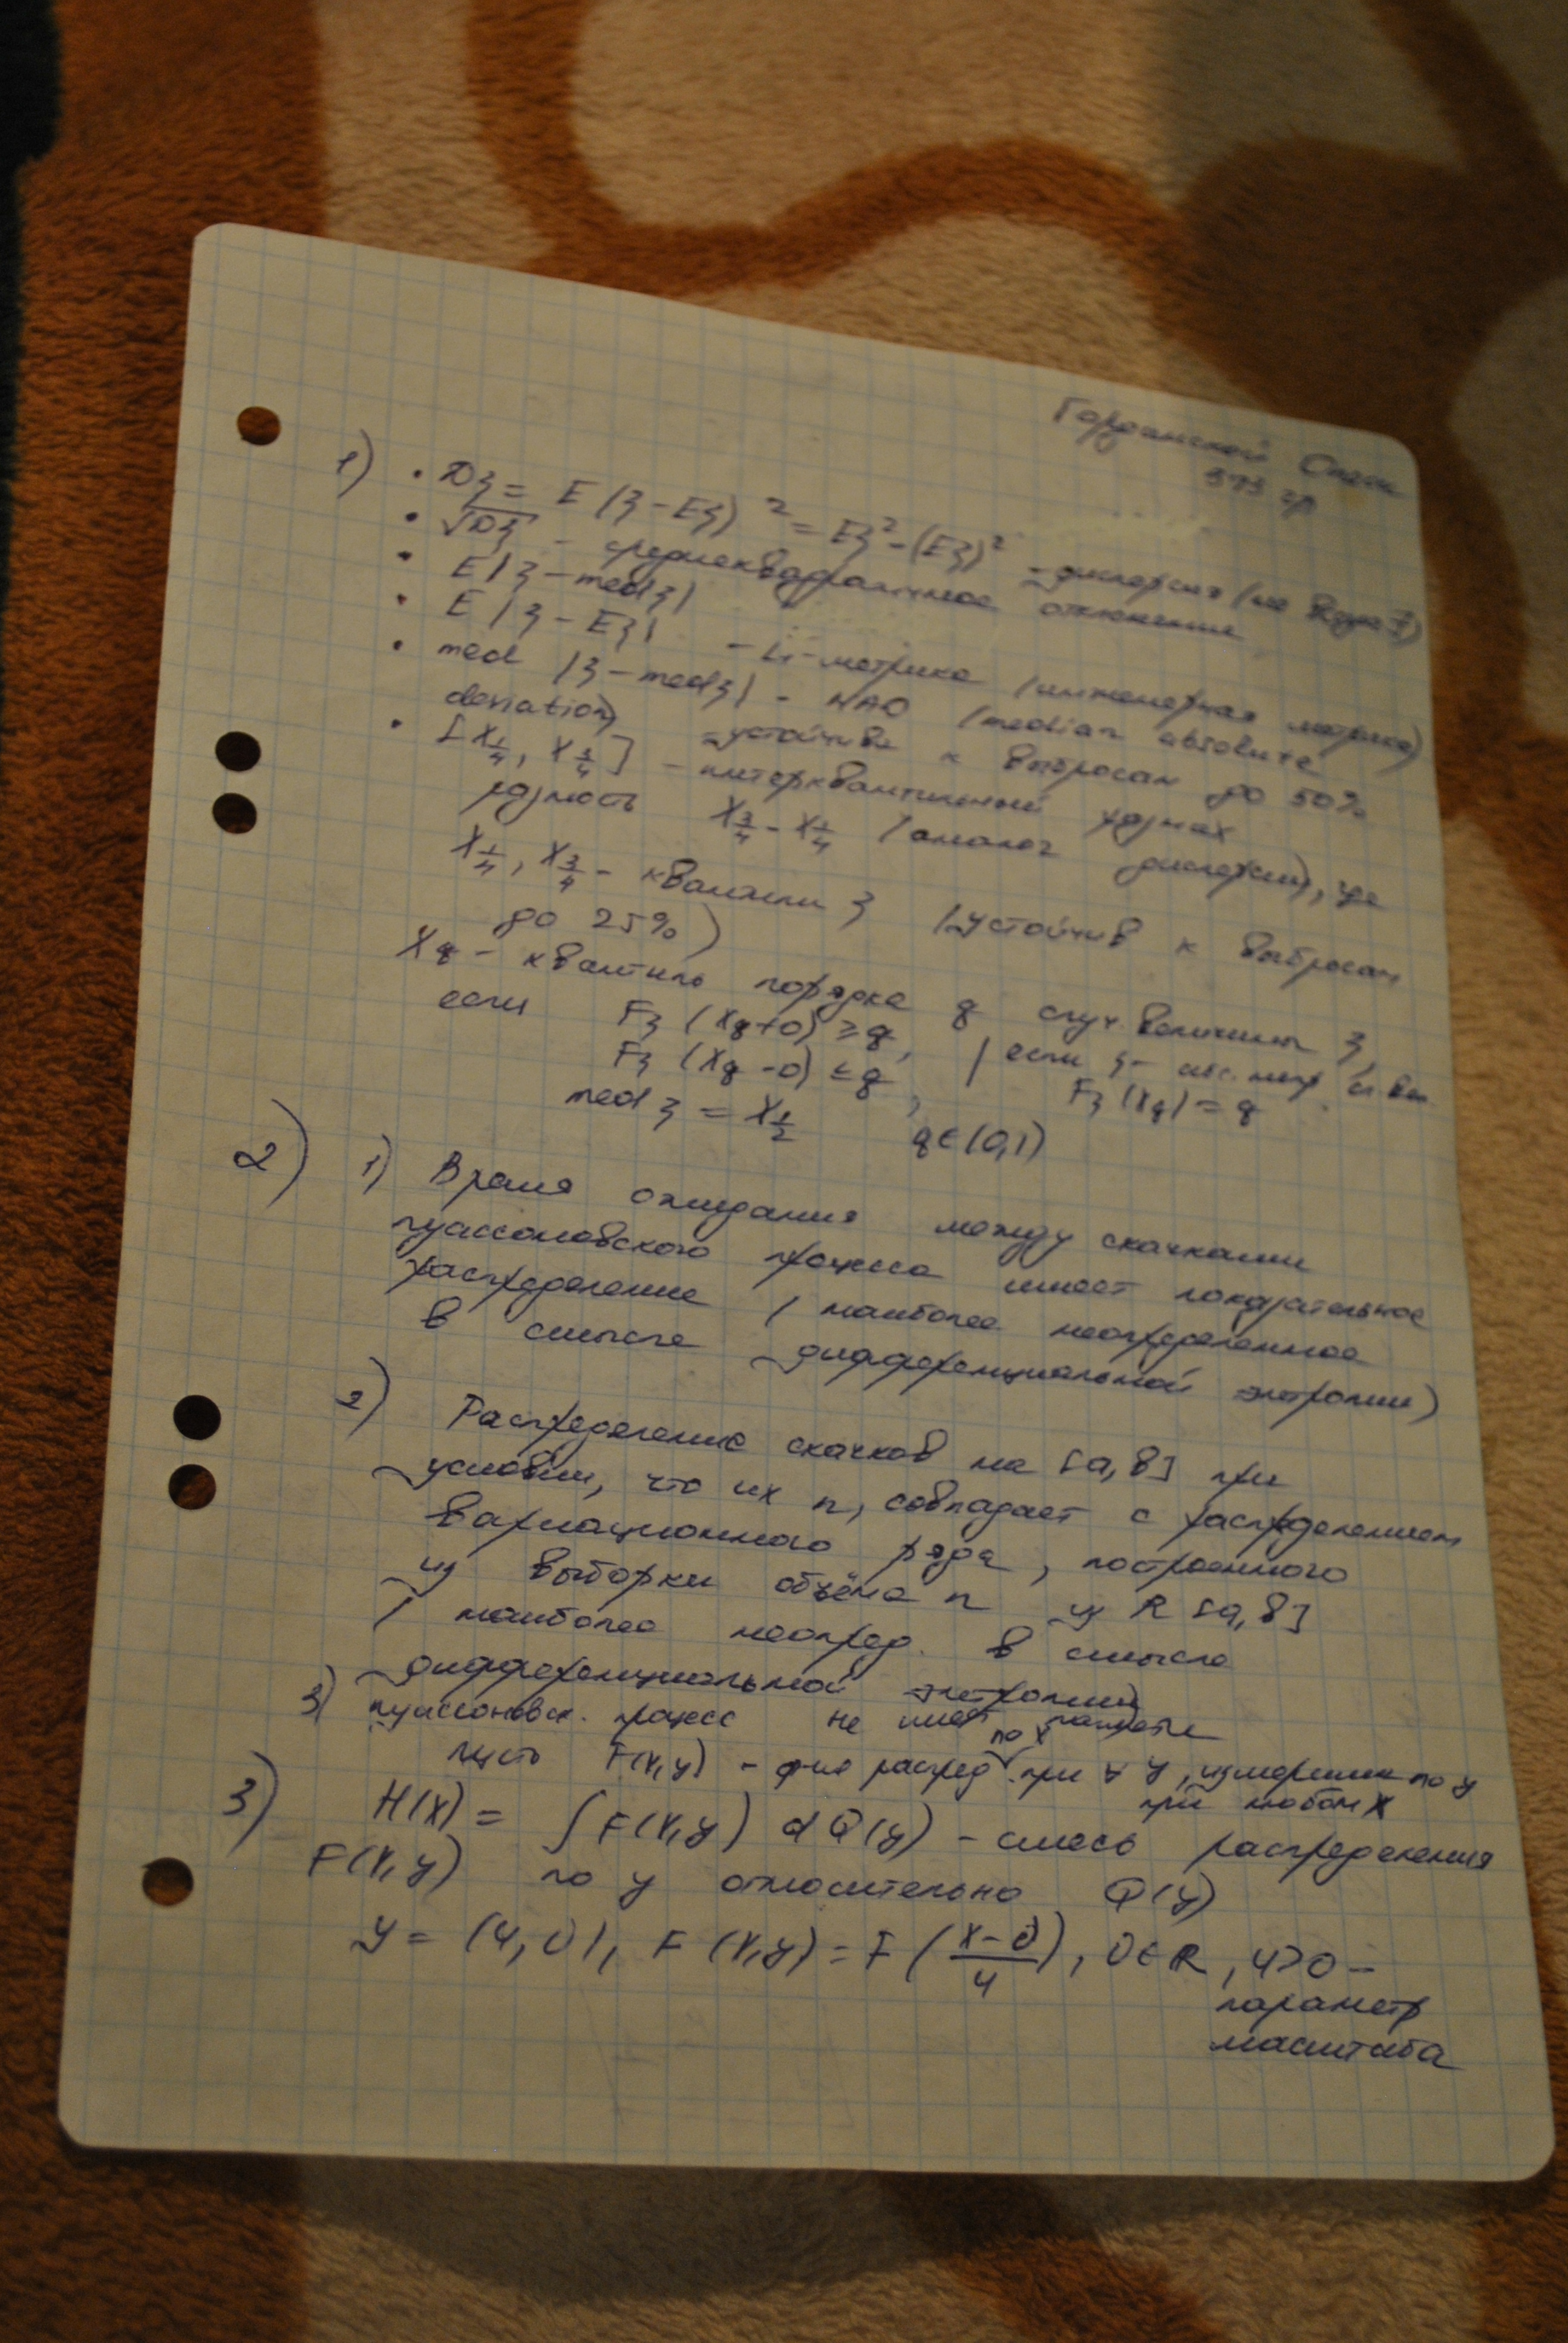 373 гр
1) • Dξ = E(ξ-Eξ)² = Eξ²-(Eξ)² - дисперсия (не
• √Dξ - среднеквадратичное отклонение
• E|ξ-med ξ|
• E|ξ-Eξ| - L₁-метрика (инженерная метрика)
• med |ξ-med ξ| - MAD (median absolute
deviation) - устойчива к выбросам до 50%
• [X_{1/4}, X_{3/4}] - интерквантильный размах
разность X_{3/4} - X_{1/4} (аналог дисперсии), где
X_{1/4}, X_{3/4} - квантили ξ (устойчив к выбросам
до 25%)
X_q - квантиль порядка q случ. величины ξ,
если F_ξ(X_q+0) ≥ q, (если ξ - абс. непр. сл. вел.
F_ξ(X_q-0) ≤ q, F_ξ(X_q) = q
med ξ = X_{1/2} q∈(0,1)
2) 1) Время ожидания между скачками
пуассоновского процесса имеет показательное
распределение (наиболее неопределенное
в смысле дифференциальной энтропии)
2) Распределение скачков на [a,b] при
условии, что их n, совпадает с распределением
вариационного ряда, построенного
из выборки объёма n из R[a,b]
(наиболее неопред. в смысле
дифференциальной энтропии)
3) пуассоновск. процесс не имеет памяти
3) пусть F(x,y) - ф-ия распред. по x при ∀ y, измеримая по y
при любом x
H(x) = ∫F(x,y) dQ(y) - смесь распределения
F(x,y) по y относительно Q(y)
y = (4,υ), F(x,y) = F((x-υ)/4), υ∈R, 4>0 -
параметр
масштаба